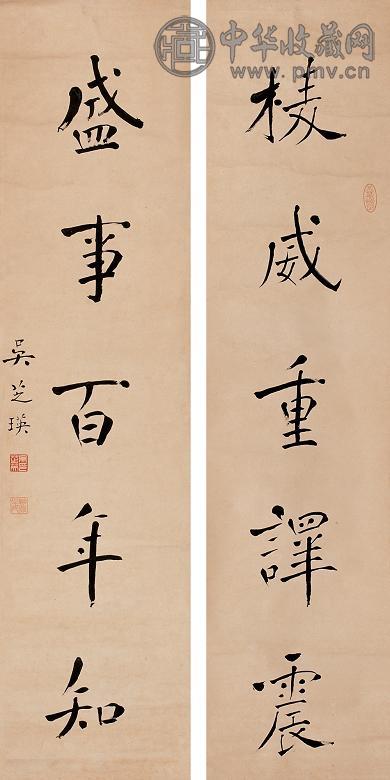 中华收藏网
www.pmv.cn
棱威重譯震
盛事百年知
吳芝瑛